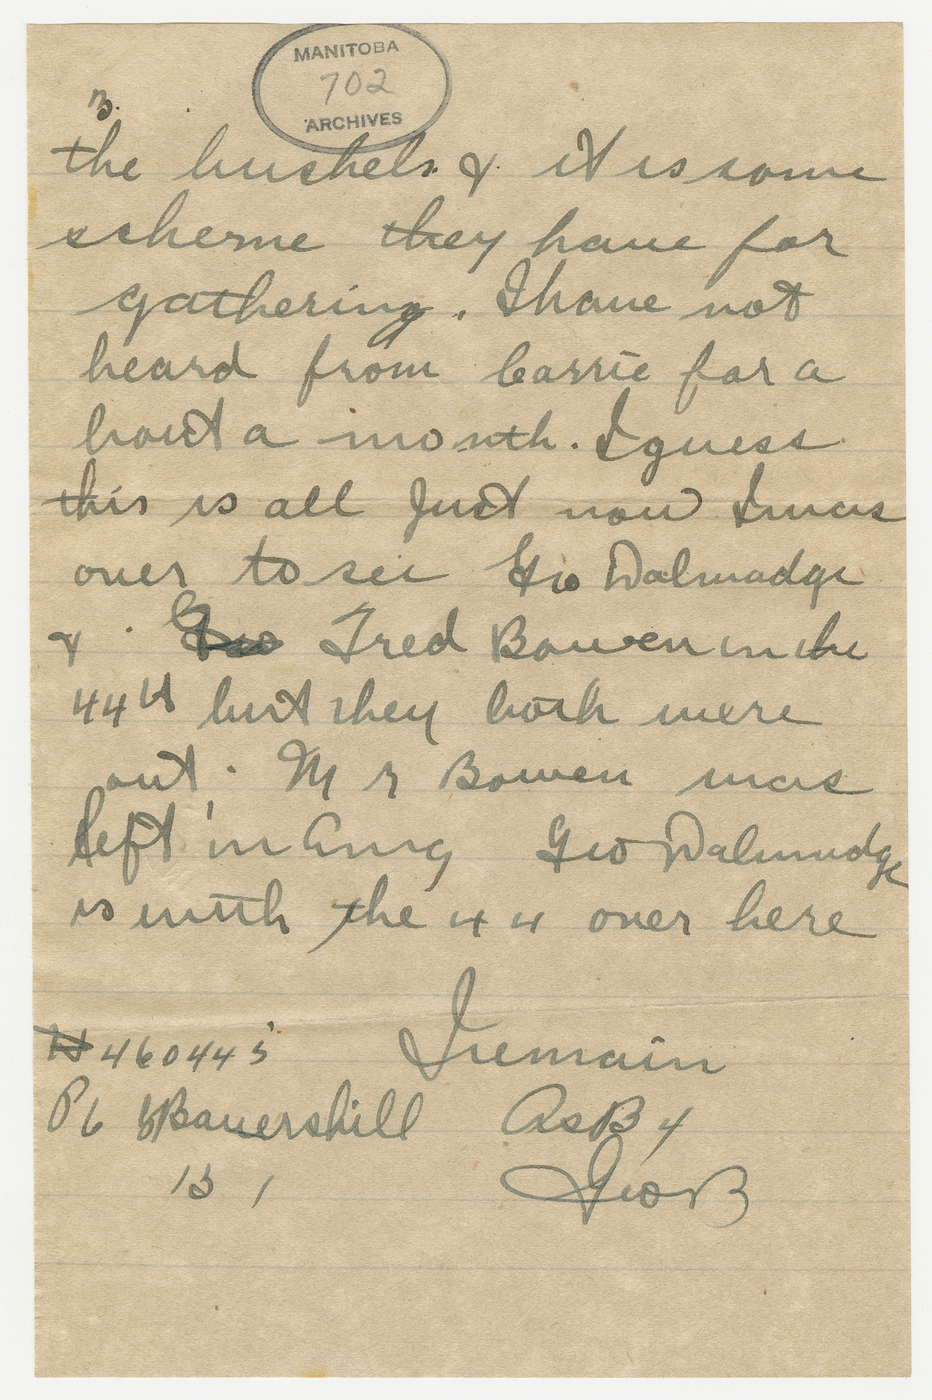 MANITOBA
702
ARCHIVES
3.
the bushels. & it is some
scheme they have for
gathering. I have not
heard from Carrie for a
bout a month. I guess
this is all Just now I was
over to see Geo Dalmadge
& Geo Fred Bowen in the
44th but they both were
out. Mr Bowen was
left in Eng Geo Dalmadge
is with the 44 over here
I remain
460445
Pt Bauershill As By
13 1
Geo B